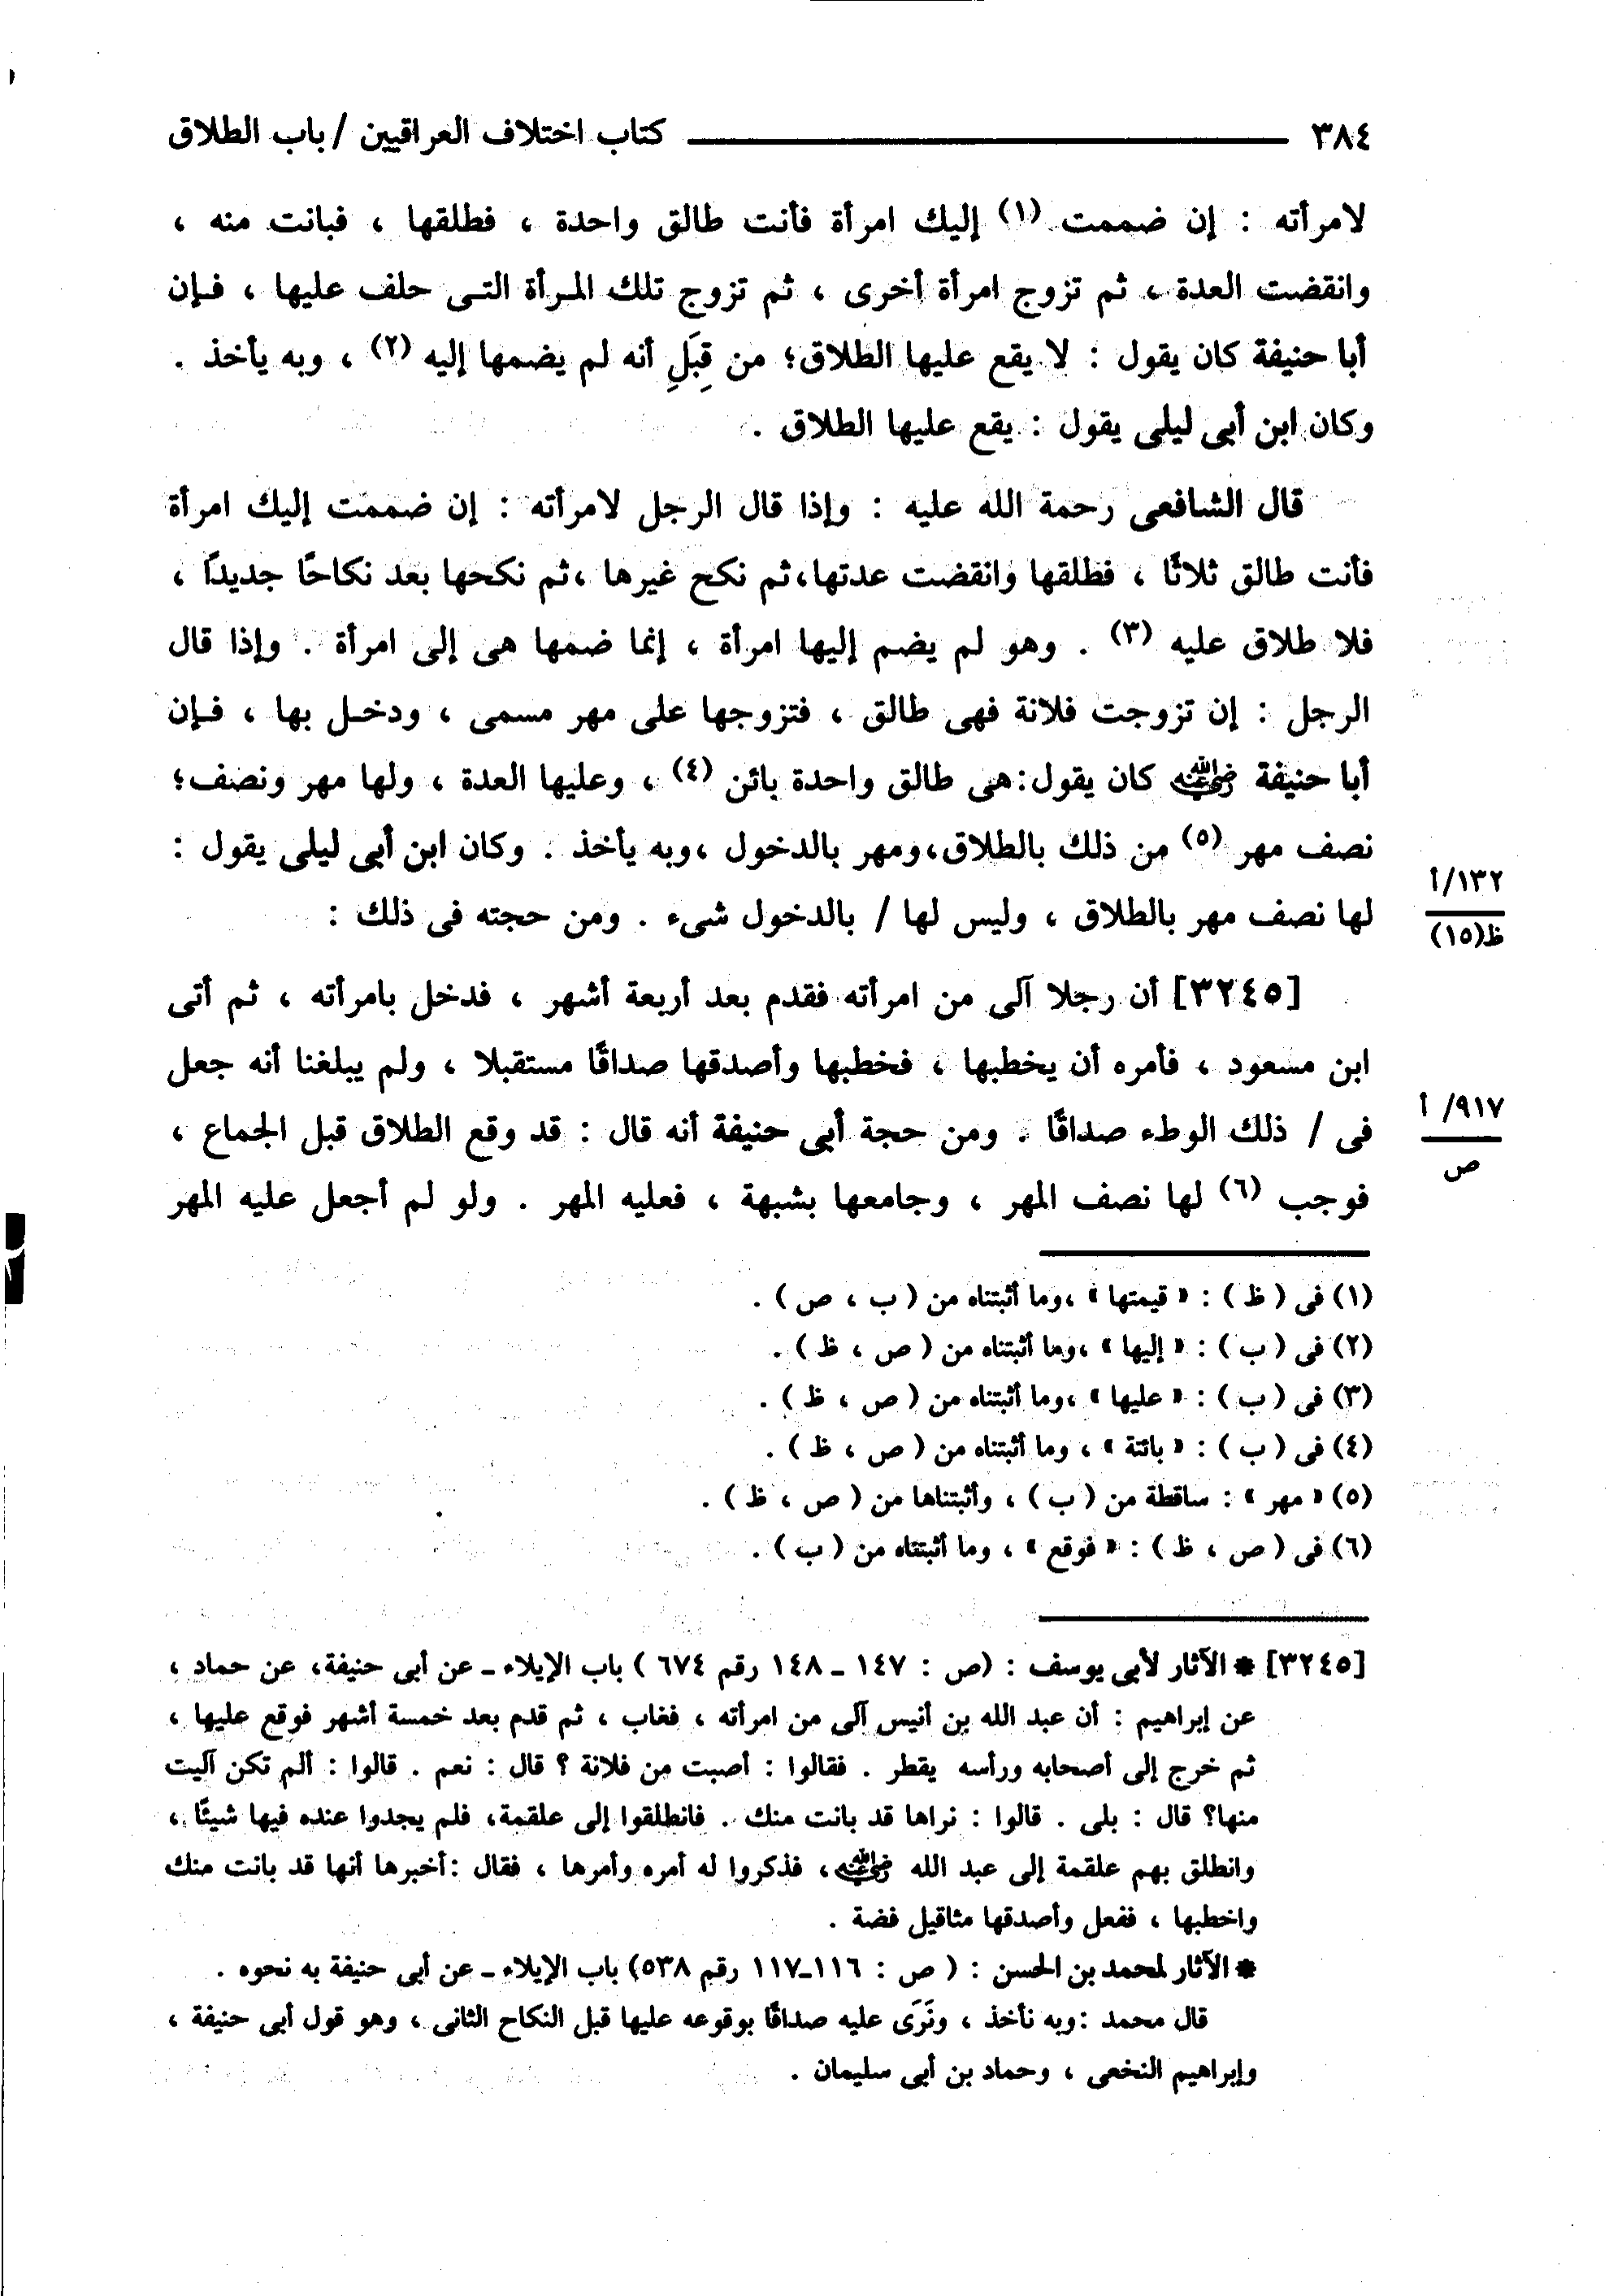 ٣٨٤ كتاب اختلاف العراقيين / باب الطلاق
لامرأته : إن ضممت (١) إليك امرأة فأنت طالق واحدة ، فطلقها ، فبانت منه ،
وانقضت العدة ، ثم تزوج امرأة أخرى ، ثم تزوج تلك المرأة التى حلف عليها ، فإن
أبا حنيفة كان يقول : لا يقع عليها الطلاق؛ من قِبَلِ أنه لم يضمها إليه (٢) ، وبه يأخذ .
وكان ابن أبى ليلى يقول : يقع عليها الطلاق .
قال الشافعى رحمة الله عليه : وإذا قال الرجل لامرأته : إن ضممت إليك امرأة
فأنت طالق ثلاثًا ، فطلقها وانقضت عدتها،ثم نكح غيرها ،ثم نكحها بعد نكاحًا جديدًا ،
فلا طلاق عليه (٣) . وهو لم يضم إليها امرأة ، إنما ضمها هى إلى امرأة . وإذا قال
الرجل : إن تزوجت فلانة فهى طالق ، فتزوجها على مهر مسمى ، ودخل بها ، فإن
أبا حنيفة رضي الله عنه كان يقول:هى طالق واحدة بائن (٤) ، وعليها العدة ، ولها مهر ونصف؛
نصف مهر (٥) من ذلك بالطلاق،ومهر بالدخول ،وبه يأخذ . وكان ابن أبى ليلى يقول :
١٣٢/أ
لها نصف مهر بالطلاق ، وليس لها / بالدخول شىء . ومن حجته فى ذلك :
ظ(١٥)
[٣٢٤٥] أن رجلا آلى من امرأته فقدم بعد أربعة أشهر ، فدخل بامرأته ، ثم أتى
ابن مسعود ، فأمره أن يخطبها ، فخطبها وأصدقها صداقًا مستقبلا ، ولم يبلغنا أنه جعل
٩١٧/ أ
فى / ذلك الوطء صداقًا . ومن حجة أبى حنيفة أنه قال : قد وقع الطلاق قبل الجماع ،
ص
فوجب (٦) لها نصف المهر ، وجامعها بشبهة ، فعليه المهر . ولو لم أجعل عليه المهر
(١) فى ( ظ ) : « قيمتها » ،وما أثبتناه من ( ب ، ص ) .
(٢) فى ( ب ) : « إليها » ،وما أثبتناه من ( ص ، ظ ) .
(٣) فى ( ب ) : « عليها » ،وما أثبتناه من ( ص ، ظ ) .
(٤) فى ( ب ) : « بائنة » ، وما أثبتناه من ( ص ، ظ ) .
(٥) « مهر » : ساقطة من ( ب ) ، وأثبتناها من ( ص ، ظ ) .
(٦) فى ( ص ، ظ ) : « فوقع » ، وما أثبتناه من ( ب ) .
[٣٢٤٥] * الآثار لأبى يوسف : (ص : ١٤٧ ـ ١٤٨ رقم ٦٧٤ ) باب الإيلاء ـ عن أبى حنيفة، عن حماد ،
عن إبراهيم : أن عبد الله بن أنيس آلى من امرأته ، فغاب ، ثم قدم بعد خمسة أشهر فوقع عليها ،
ثم خرج إلى أصحابه ورأسه يقطر . فقالوا : أصبت من فلانة ؟ قال : نعم . قالوا : ألم تكن آليت
منها؟ قال : بلى . قالوا : نراها قد بانت منك . فانطلقوا إلى علقمة، فلم يجدوا عنده فيها شيئًا ،
وانطلق بهم علقمة إلى عبد الله رضي الله عنه، فذكروا له أمره وأمرها ، فقال :أخبرها أنها قد بانت منك
واخطبها ، ففعل وأصدقها مثاقيل فضة .
* الآثار لمحمد بن الحسن : ( ص : ١١٦ـ١١٧ رقم ٥٣٨) باب الإيلاء ـ عن أبى حنيفة به نحوه .
قال محمد :وبه نأخذ ، ونَرَى عليه صداقًا بوقوعه عليها قبل النكاح الثانى ، وهو قول أبى حنيفة ،
وإبراهيم النخعى ، وحماد بن أبى سليمان .